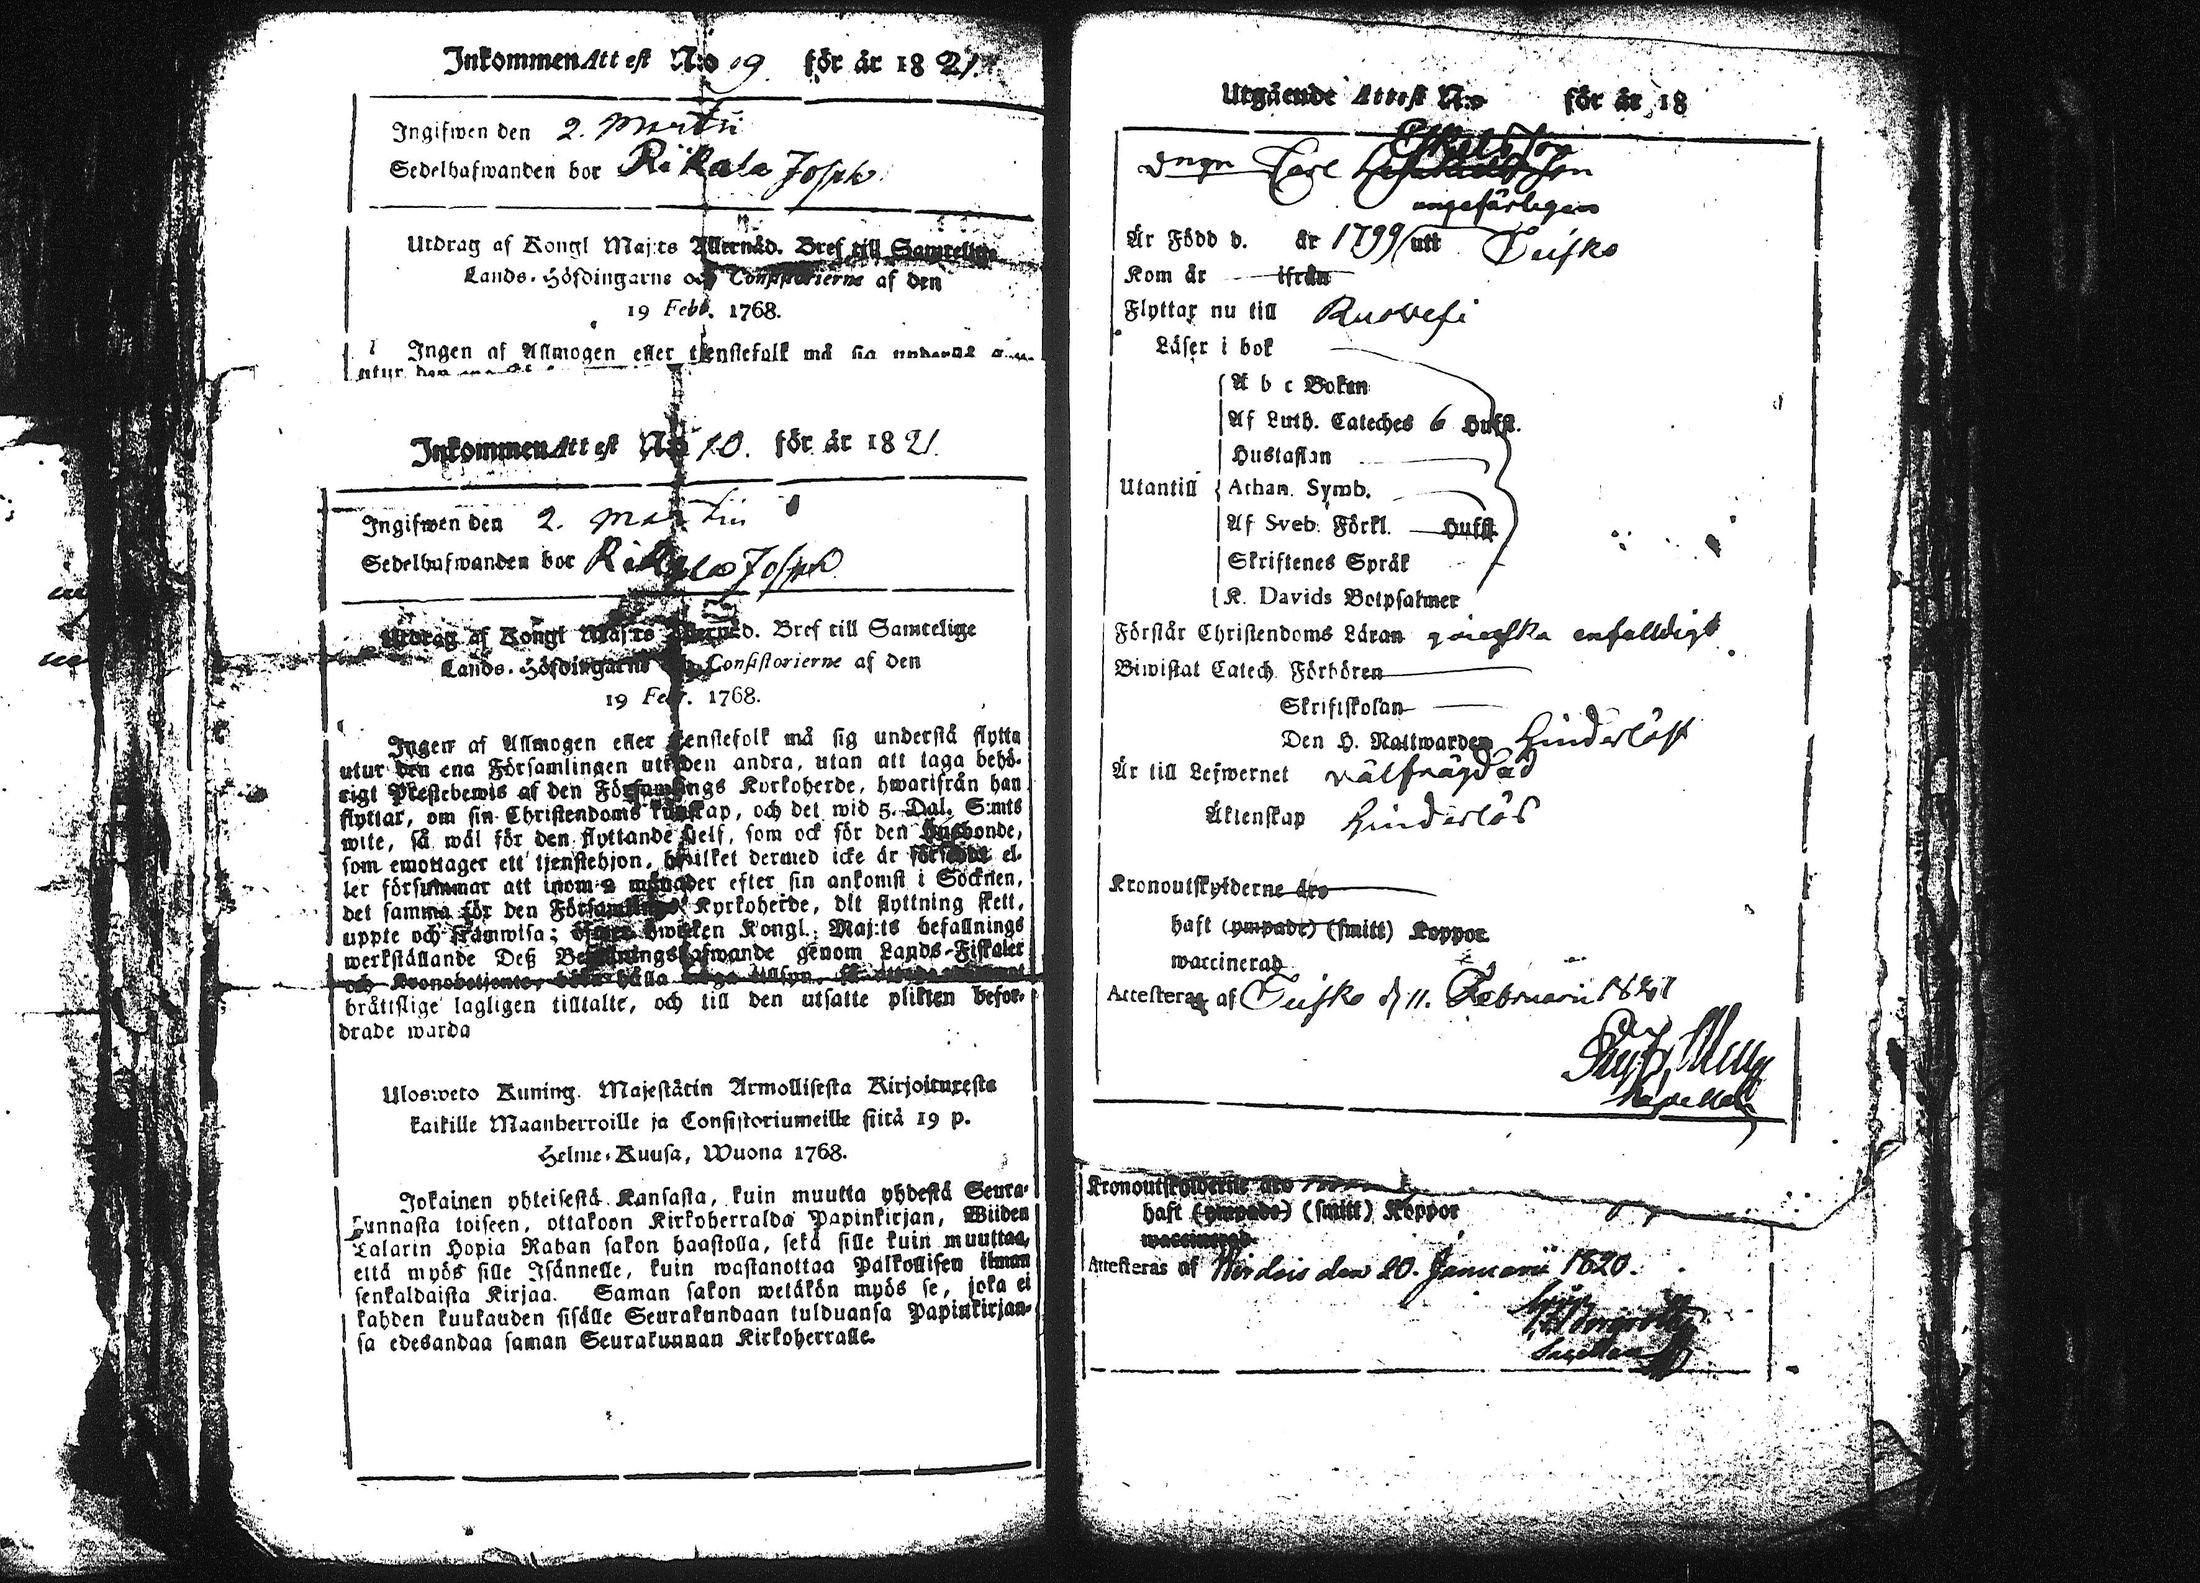 Inkommen Attest N:o 9 för år 1821.
Ingifwen den 2. Martii
Sedelhafwanden bor Rikala Joseph
Utdrag af Kongl Maj:ts Allernåd. Bref till Samtelige
Lands-Höfdingarne och Consistorierne af den
19 Febr. 1768.
Ingen af Allmogen eller tjenstefolk må sig understå
utur den ena
Inkommen Attest N:o 10. för år 1821.
Ingifwen den 2. Martii
Sedelhafwanden bor Rikala Joseph
Utdrag af Kongl Maj:ts Allernåd. Bref till Samtelige
Lands-Höfdingarne och Consistorierne af den
19 Febr. 1768.
Ingen af Allmogen eller tjenstefolk må sig understå flytta
utur den ena Församlingen uti den andra, utan att taga behö-
rigt Prestebewis af den Församlings Kyrkoherde, hwarifrån han
flyttar, om sin Christendoms kunskap, och det wid 5. Dal. S:mts
wite, så wäl för den flyttande sielf, som ock för den Husbonde,
som emottager ett tjenstehjon, hwilket dermed icke är försedt el-
ler försummar att inom 2 månader efter sin ankomst i Socknen,
det samma för den Församlings Kyrkoherde, dit flyttning skett,
uppte och framwisa; öfwer hwilken Kongl. Maj:ts befallnings
werkställande Deß Befallningshafwande genom Lands-Fiskaler
och Kronobetjenter böra hålla noga tillsyn,
bråttslige lagligen tilltalte, och till den utsatte plikten befor-
drade warda
Ulosweto Kuning. Majestätin Armollisesta Kirjoituxesta
kaikille Maanherroille ja Consistoriumeille siitä 19 p.
Helme-Kuusa, Wuona 1768.
Jokainen yhteisestä Kansasta, kuin muutta yhdestä Seura-
kunnasta toiseen, ottakoon Kirkoherralda Papinkirjan, Wiiden
Talarin Hopia Rahan sakon haastolla, sekä sille kuin muuttaa,
että myös sille Isännelle, kuin wastanottaa Palkollisen ilman
senkaldaista Kirjaa. Saman sakon wetäkön myös se, joka ei
kahden kuukauden sisälle Seurakundaan tulduansa Papinkirjan-
sa edesandaa saman Seurakunnan Kirkoherralle.
Utgående Attest N:o för år 18
Eskelsson
Drgn Carl
ungefärligen
Är Född d. år 1799 utt Teisko
Kom år ifrån
Flyttar nu till Ruovesi
Läser i bok
A b c Boken
Af Luth. Cateches 6 Hufst.
Hustaflan
Utantill Athan. Symb.
Af Sveb. Förkl. Hufst.
Skriftenes Språk
K. Davids Botpsalmer
Förstår Christendoms Läran ganska enfaldigt
Biwistat Catech. Förhören
Skriftskolan
Den H. Nattwarden hinderlöst
Är till Lefwernet välfrägdad
Äktenskap hinderlös
Kronoutskylderne äro
haft (ympade) (smitt) Koppor
waccinerad
Attesteras af Teisko d 11. Februarii 1821
Kapellan
Kronoutskylderne äro
haft (ympade) (smitt) Koppor
waccinerad
Attesteras af Wirdois den 20. Januarii 1820.